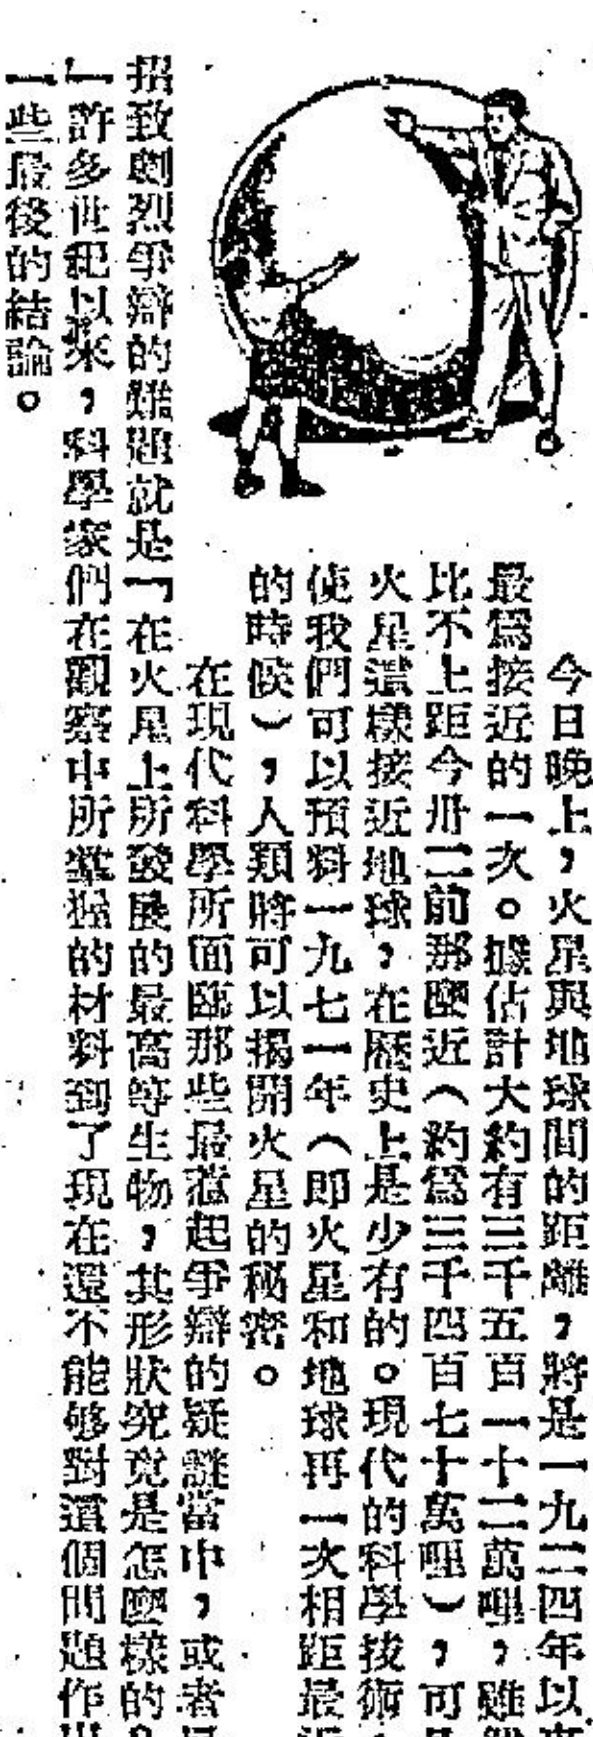 今日晚上，火星與地球間的距離，將是一九二四年以來
最爲接近的一次。據估計大約有三千五百一十二萬哩，雖然
比不上距今卅二前那麼近（約爲三千四百七十萬哩），可是
火星這樣接近地球，在歷史上是少有的。現代的科學技術，
使我們可以預料一九七一年（卽火星和地球再一次相距最近
的時候），人類將可以揭開火星的秘密。
在現代科學所面臨那些最惹起爭辯的疑謎當中，或者
招致劇烈爭辯的難題就是「在火星上所發展的最高等生物，其形狀究竟是怎麼樣的
」許多世紀以來，科學家們在觀察中所掌握的材料到了現在還不能够對這個問題作出
一些最後的結論。